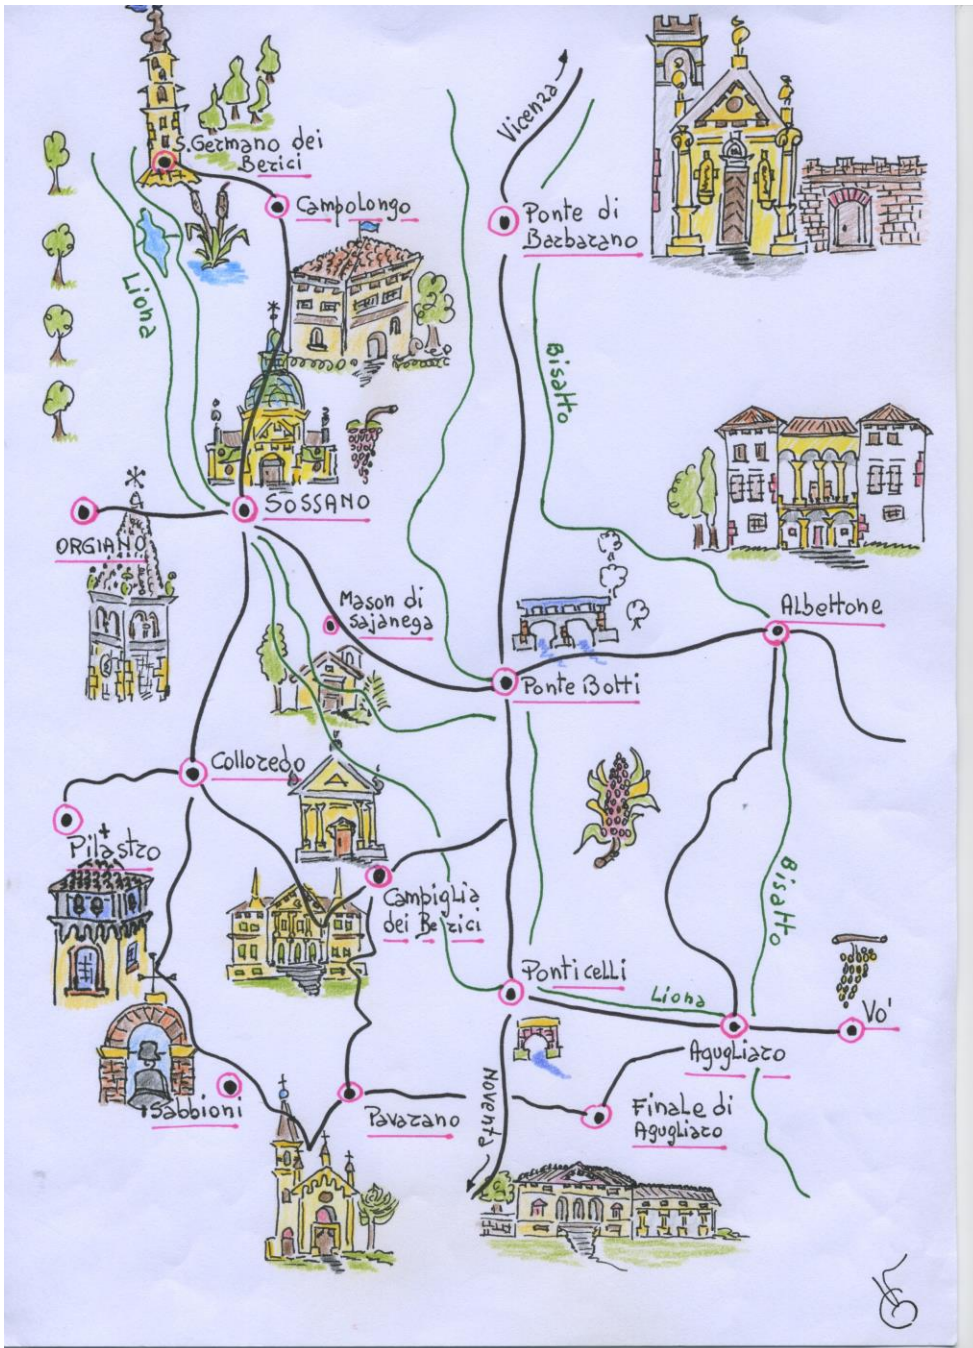 Vicenza
S. Germano dei
Berici
Campolongo
Ponte di
Barbarano
Liona
Bisatto
SOSSANO
ORGIANO
Mason di
Sajanega
Albettone
Ponte Botti
Colloredo
Pilastro
Campiglia
dei Berici
Bisatto
Ponticelli
Liona
Vo'
Agugliaro
Sabbioni
Pavarano
Noventa
Finale di
Agugliaro